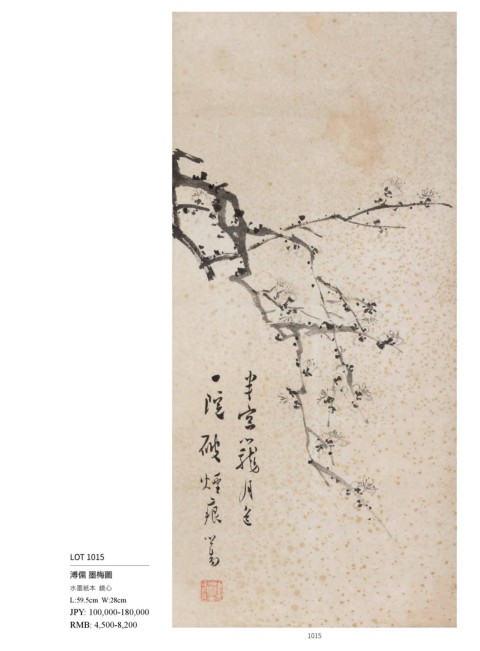 半窗籠月色
一院破煙痕
LOT 1015
溥儒 墨梅圖
水墨紙本 鏡心
L:59.5cm W:28cm
JPY: 100,000-180,000
RMB: 4,500-8,200
1015